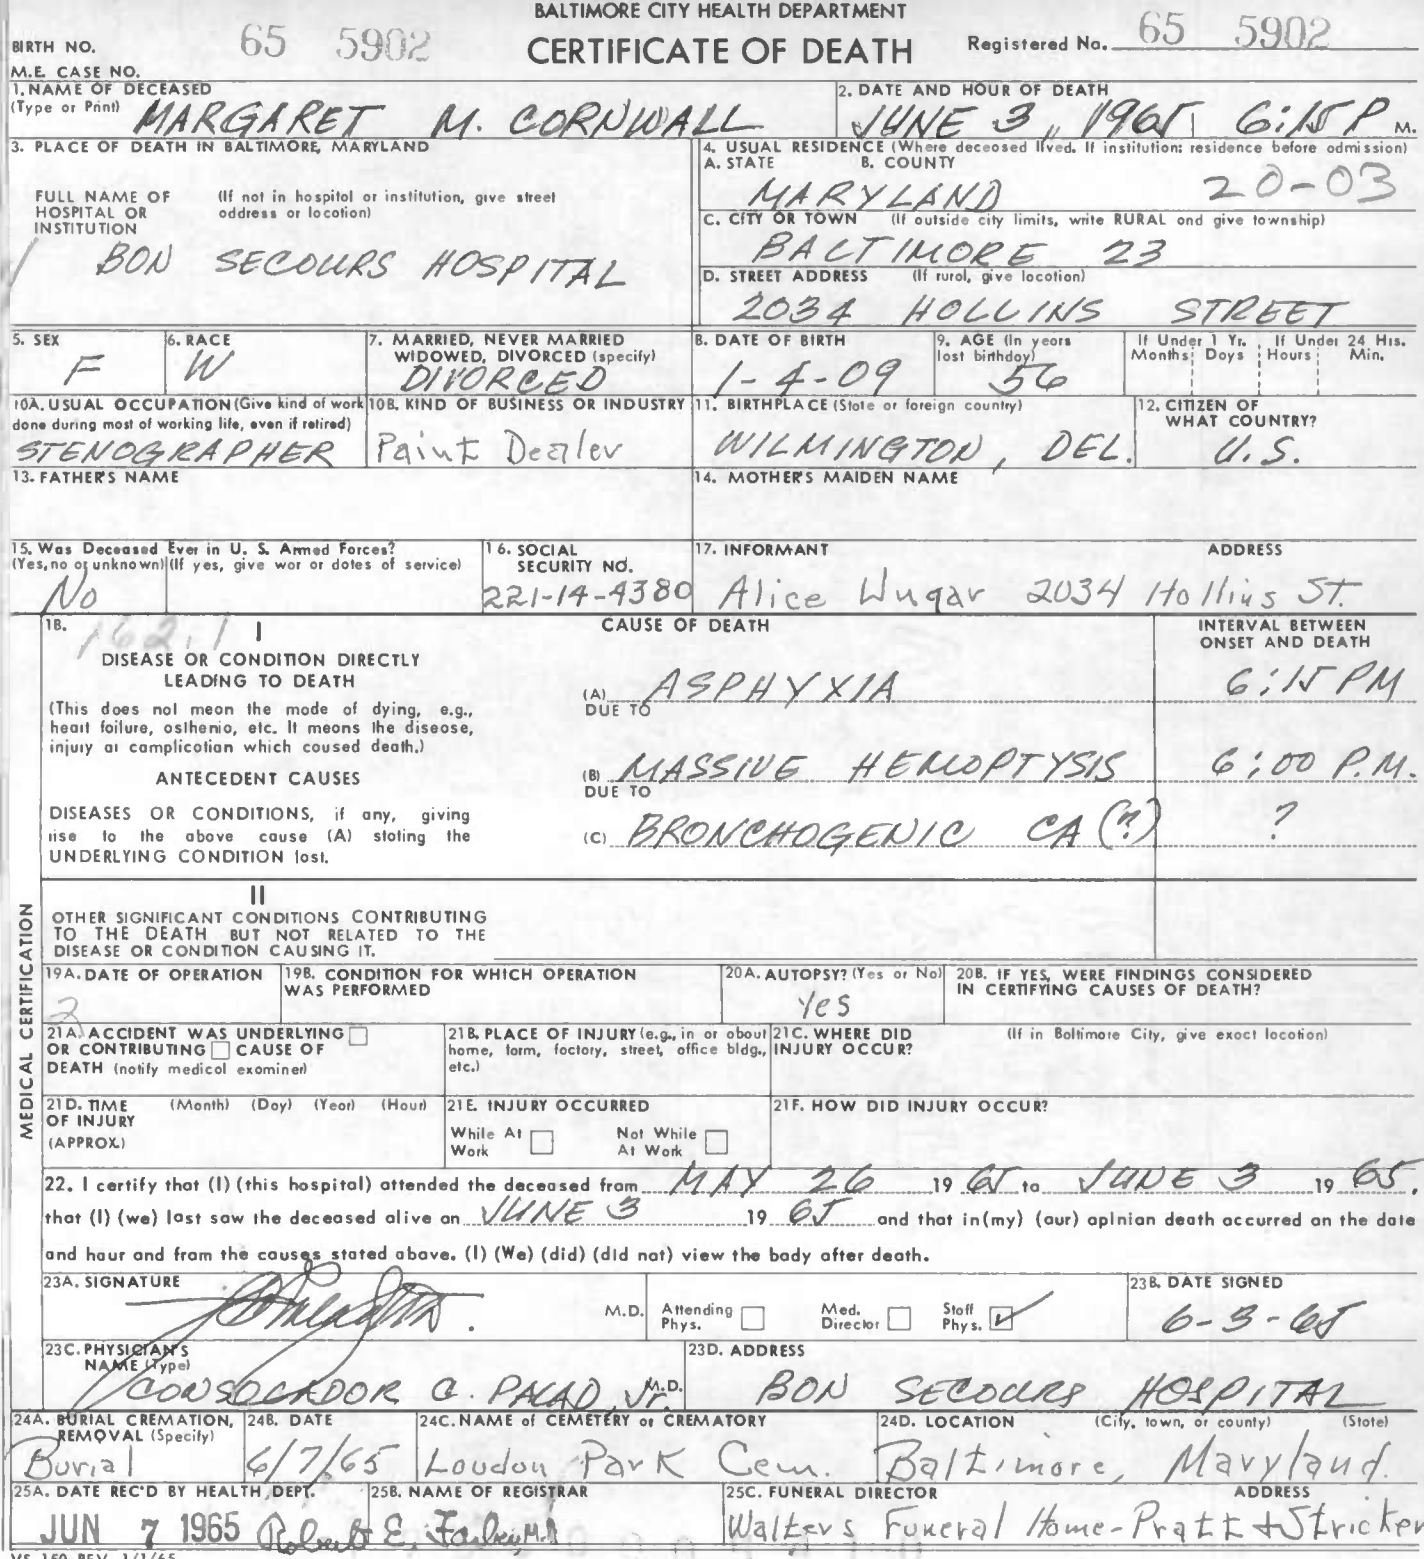 BALTIMORE CITY HEALTH DEPARTMENT
BIRTH NO. 65 5902 CERTIFICATE OF DEATH Registered No. 65 5902
M.E. CASE NO.
1. NAME OF DECEASED (Type or Print) MARGARET M. CORNWALL
2. DATE AND HOUR OF DEATH JUNE 3, 1965 6:15 P M.
3. PLACE OF DEATH IN BALTIMORE, MARYLAND
FULL NAME OF HOSPITAL OR INSTITUTION (If not in hospital or institution, give street address or location)
BON SECOURS HOSPITAL
4. USUAL RESIDENCE (Where deceased lived. If institution: residence before admission)
A. STATE B. COUNTY
MARYLAND 20-03
C. CITY OR TOWN (If outside city limits, write RURAL and give township)
BALTIMORE 23
D. STREET ADDRESS (If rural, give location)
2034 HOLLINS STREET
5. SEX F
6. RACE W
7. MARRIED, NEVER MARRIED WIDOWED, DIVORCED (specify) DIVORCED
8. DATE OF BIRTH 1-4-09
9. AGE (In years last birthday) 56
If Under 1 Yr. Months Days
If Under 24 Hrs. Hours Min.
10A. USUAL OCCUPATION (Give kind of work done during most of working life, even if retired) STENOGRAPHER
10B. KIND OF BUSINESS OR INDUSTRY Paint Dealer
11. BIRTHPLACE (State or foreign country) WILMINGTON, DEL.
12. CITIZEN OF WHAT COUNTRY? U.S.
13. FATHER'S NAME
14. MOTHER'S MAIDEN NAME
15. Was Deceased Ever in U. S. Armed Forces? (Yes, no or unknown) (If yes, give war or dates of service) No
16. SOCIAL SECURITY NO. 221-14-4380
17. INFORMANT ADDRESS
Alice Wugar 2034 Hollins ST.
18. 162.1 I CAUSE OF DEATH INTERVAL BETWEEN ONSET AND DEATH
DISEASE OR CONDITION DIRECTLY LEADING TO DEATH
(This does not mean the mode of dying, e.g., heart failure, asthenia, etc. It means the disease, injury or complication which caused death.)
(A) ASPHYXIA 6:15 PM
DUE TO
ANTECEDENT CAUSES
(B) MASSIVE HEMOPTYSIS 6:00 P.M.
DUE TO
DISEASES OR CONDITIONS, if any, giving rise to the above cause (A) stating the UNDERLYING CONDITION last.
(C) BRONCHOGENIC CA (?) ?
II
OTHER SIGNIFICANT CONDITIONS CONTRIBUTING TO THE DEATH BUT NOT RELATED TO THE DISEASE OR CONDITION CAUSING IT.
MEDICAL CERTIFICATION
19A. DATE OF OPERATION 2
19B. CONDITION FOR WHICH OPERATION WAS PERFORMED
20A. AUTOPSY? (Yes or No) Yes
20B. IF YES, WERE FINDINGS CONSIDERED IN CERTIFYING CAUSES OF DEATH?
21A. ACCIDENT WAS UNDERLYING OR CONTRIBUTING CAUSE OF DEATH (notify medical examiner)
21B. PLACE OF INJURY (e.g., in or about home, farm, factory, street, office bldg., etc.)
21C. WHERE DID INJURY OCCUR? (If in Baltimore City, give exact location)
21D. TIME OF INJURY (APPROX.) (Month) (Day) (Year) (Hour)
21E. INJURY OCCURRED While At Work Not While At Work
21F. HOW DID INJURY OCCUR?
22. I certify that (I) (this hospital) attended the deceased from MAY 26 19 65 to JUNE 3 19 65,
that (I) (we) last saw the deceased alive on JUNE 3 19 65 and that in(my) (our) opinion death occurred on the date
and hour and from the causes stated above. (I) (We) (did) (did not) view the body after death.
23A. SIGNATURE M.D. Attending Phys. Med. Director Staff Phys.
23B. DATE SIGNED 6-3-65
23C. PHYSICIAN'S NAME (Type) CONSOLADOR C. PALAD, Jr. M.D.
23D. ADDRESS BON SECOURS HOSPITAL
24A. BURIAL CREMATION, REMOVAL (Specify) Burial
24B. DATE 6/7/65
24C. NAME of CEMETERY or CREMATORY Loudon Park Cem.
24D. LOCATION (City, town, or county) (State) Baltimore, Maryland.
25A. DATE REC'D BY HEALTH DEPT. JUN 7 1965
25B. NAME OF REGISTRAR Robert E. Farber, M.D.
25C. FUNERAL DIRECTOR ADDRESS
Walters Funeral Home-Pratt + Stricker
VS 150 REV. 1/1/65